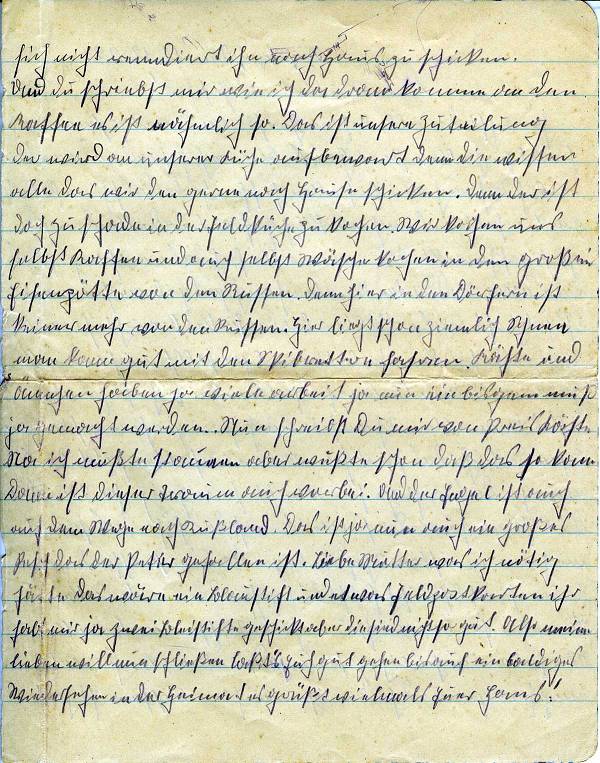 sich nicht rendiert ihn nach Haus zu schicken.
Und du schriebst mir wie ich da dran komme an den
Kaffee es ist nähmlich so. Das ist unsere Zuteilung
der wird an unserer Küche aufbewart denn die wissen
alle das wir den gerne nach Hause schicken. Denn der ist
doch zu schade in der Feldküche zu kochen. Wir kochen uns
selbst Kaffee und auch selbst Wäsche kochen in den großen
von den Russen, denn hier in den Dörfern ist
keiner mehr von den Russen. Hier liegt schon ziemlich Schnee
man kann gut mit den fahren. Käthe und
Ännchen haben ja viele arbeit ja nun ein bisgen muß
ja gemacht werden. Nun schreibst Du mir von Käthe
Na ich mußte staunen aber wußte schon daß das so kam
Dann ist dieser traum auch vorbei. Und der ist auch
auf dem Wege nach Rußland. Das ist ja nun auch ein großes
das der Peter gefallen ist. Liebe Mutter was ich nötig
hätte das wäre ein Blaustift und etwas Feldpostkarten ihr
habt mir ja zwei Bleistifte geschickt aber die sind nicht so gut. Also meine
lieben will nun schließen laßt's Euch gut gehen bis auf ein baldiges
Wiedersehen in der Heimat es grüßt vielmals Euer Hans!